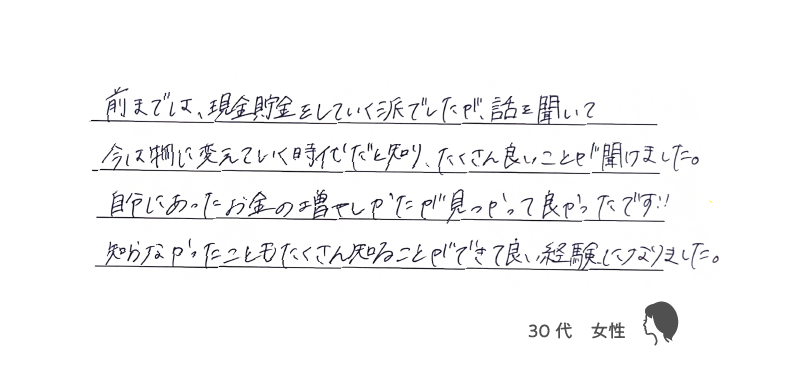 前までは、現金貯金をしていく派でしたが、話を聞いて
今は物に変えていく時代だと知り、たくさん良いことが聞けました。
自分にあったお金の増やしかたが見つかって良かったです!!
知らなかったこともたくさん知ることができて良い経験になりました。
30代 女性